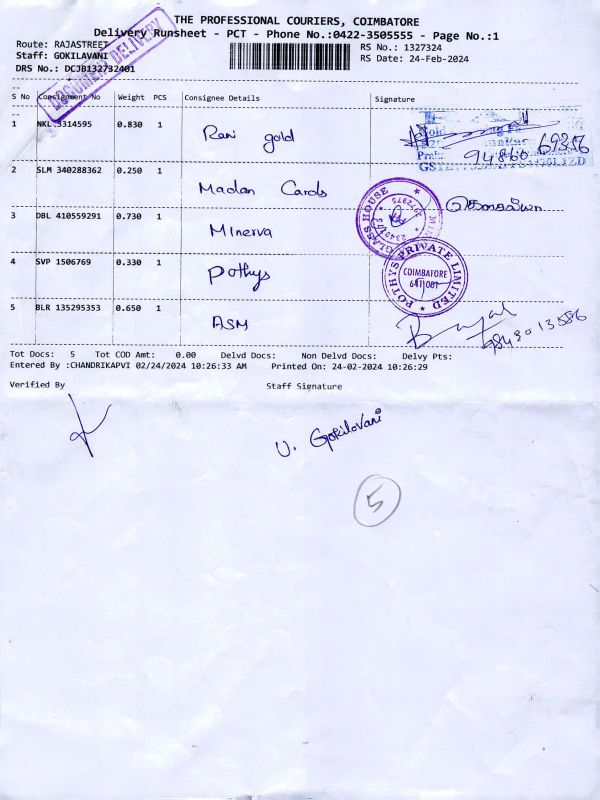 THE PROFESSIONAL COURIERS, COIMBATORE
Delivery Runsheet - PCT - Phone No.:0422-3505555 - Page No.:1
Route: RAJASTREET
Staff: GOKILAVANI
DRS No.: DCJB132732401
RS No.: 1327324
RS Date: 24-Feb-2024
DOCUMENT DELIVERY
S No Consignment No Weight PCS Consignee Details Signature
1 NKL 3314595 0.830 1 Rani gold
94860 69356
2 SLM 340288362 0.250 1 Madan Cards
3 DBL 410559291 0.730 1 Minerva
GLASS HOUSE
4 SVP 1506769 0.330 1 Pothys
POTHYS PRIVATE LIMITED
COIMBATORE
641 001
5 BLR 135295353 0.650 1 ASM
9843013586
Tot Docs: 5 Tot COD Amt: 0.00 Delvd Docs: Non Delvd Docs: Delvy Pts:
Entered By :CHANDRIKAPVI 02/24/2024 10:26:33 AM Printed On: 24-02-2024 10:26:29
Verified By Staff Signature
U. Gokilavani
5